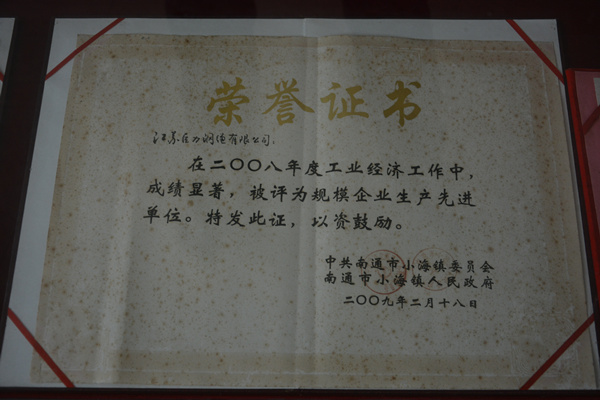 荣誉证书
江苏巨力钢绳有限公司:
在二〇〇八年度工业经济工作中,
成绩显著，被评为规模企业生产先进
单位。特发此证，以资鼓励。
中共南通市小海镇委员会
南通市小海镇人民政府
二〇〇九年二月十八日